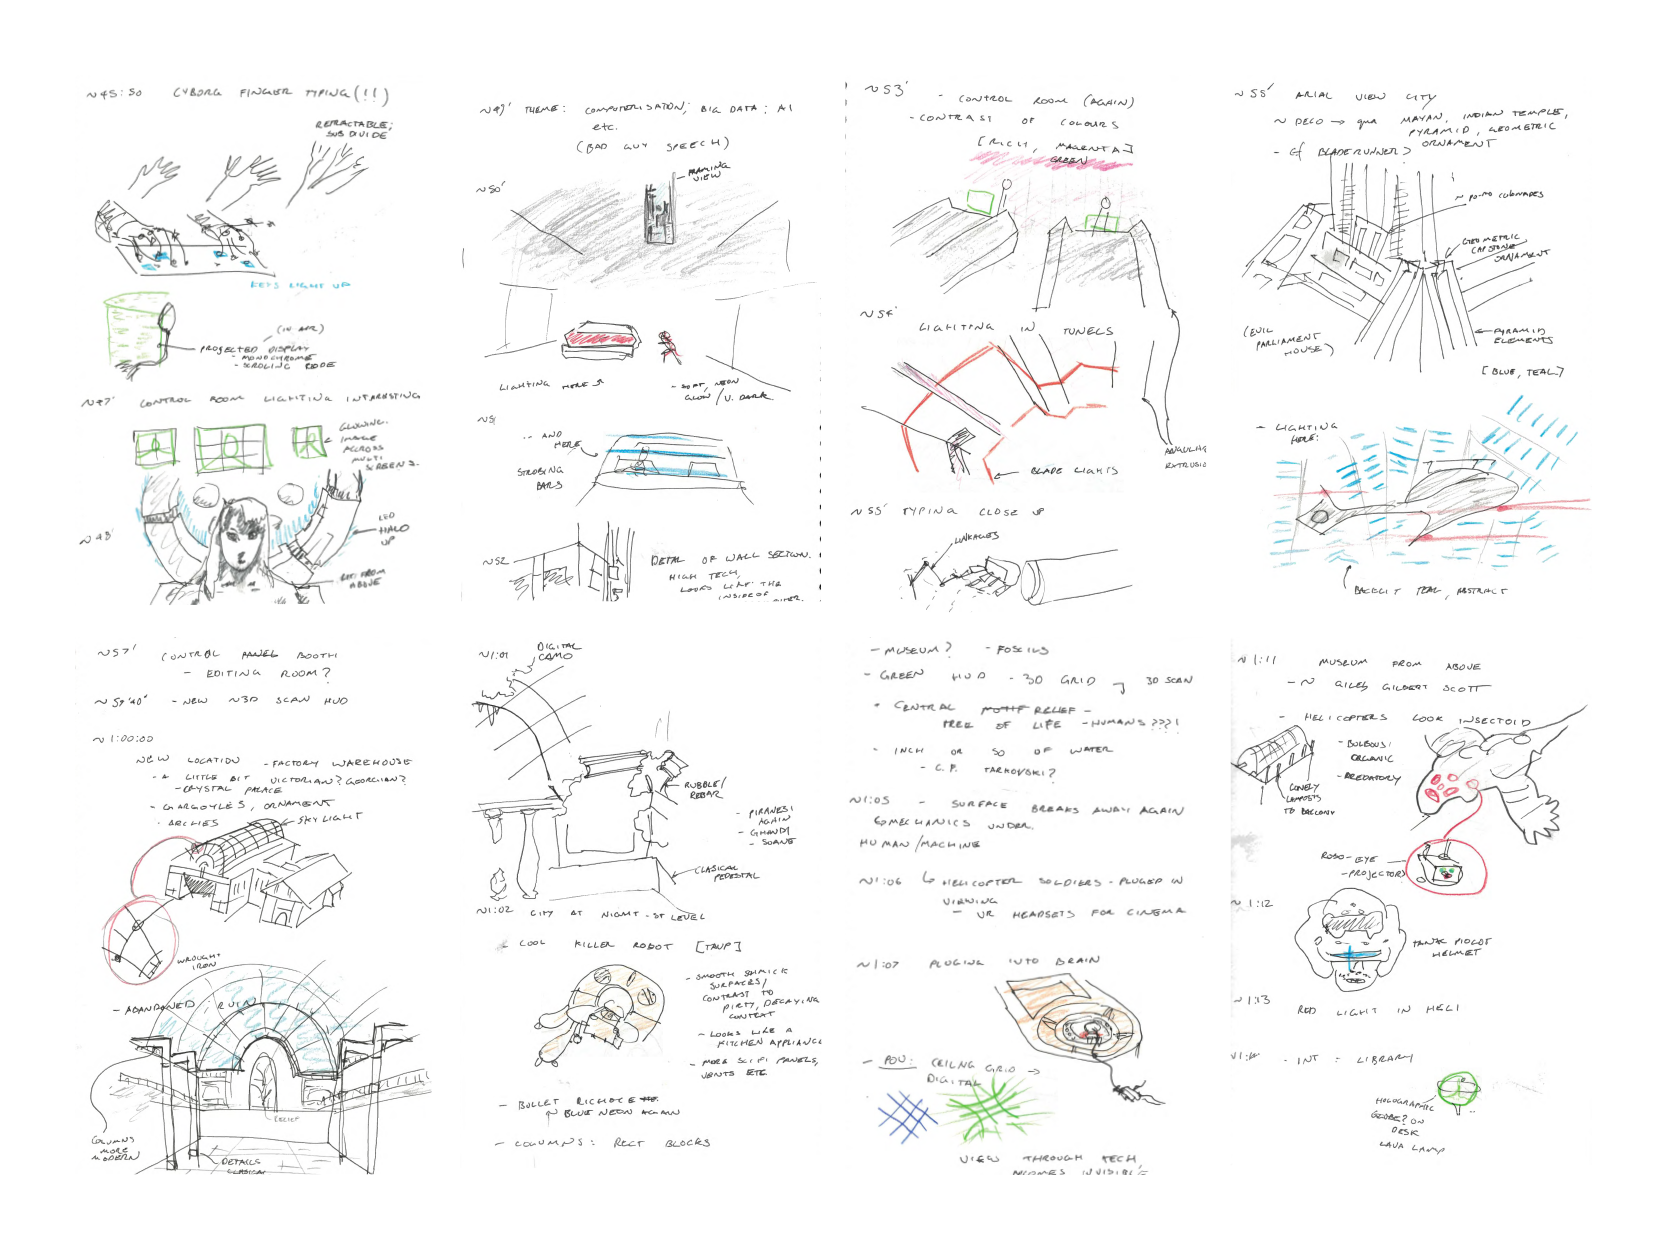 ~45:50 CYBORG FINGER TYPING (!!)
RETRACTABLE;
SUB DIVIDE
KEYS LIGHT UP
(IN AIR)
PROJECTED DISPLAY
- MONOCHROME
- SCROLLING CODE
~47' CONTROL ROOM LIGHTING INTERESTING
GLOWING.
IMAGE
ACCROSS
MULTI
SCREENS.
~48'
LED
HALO
UP
LIT FROM
ABOVE
~49' THEME: COMPUTERISATION; BIG DATA; AI
etc.
(BAD GUY SPEECH)
FRAMING
VIEW
~50'
LIGHTING HERE
- SOFT, NEON
GLOW / V. DARK
~51
... AND
HERE
STROBING
BARS
~52
DETAIL OF WALL SECTION.
HIGH TECH,
LOOKS LIKE THE
INSIDE OF
~53' - CONTROL ROOM (AGAIN)
- CONTRAST OF COLOURS
[RICH, MAGENTA]
GREEN
~54'
LIGHTING IN TUNELS
BLADE LIGHTS
ANGULAR
EXTRUSIO
~55' TYPING CLOSE UP
LINKAGES
~55' ARIAL VIEW CITY
~ DECO → qua MAYAN, INDIAN TEMPLE,
PYRAMID, GEOMETRIC
ORNAMENT
- cf BLADERUNNER
~ PO-MO COLONADES
GEOMETRIC
CAPSTONE
ORNAMENT
(EVIL
PARLIAMENT
HOUSE)
PYRAMID
ELEMENTS
[BLUE, TEAL]
- LIGHTING
HERE:
BACKLIT TEAL, ABSTRACT
~57' CONTROL PANEL BOOTH
- EDITING ROOM?
~59'40" - NEW ~3D SCAN HUD
~1:00:00
NEW LOCATION - FACTORY WAREHOUSE
- A LITTLE BIT VICTORIAN? GEORGIAN?
- CRYSTAL PALACE
- GARGOYLES, ORNAMENT
- ARCHES
SKYLIGHT
WROUGHT
IRON
- ABANDONED RUIN
RELIEF
COLUMNS
MORE
MODERN
DETAILS
CLASICAL
~1:01
DIGITAL
CAMO
RUBBLE/
REBAR
- PIRANESI
AGAIN
- GHANDI
- SOANE
CLASICAL
PEDESTAL
~1:02 CITY AT NIGHT - ST LEVEL
COOL KILLER ROBOT [TAUP]
- SMOOTH SHMICK
SURFACES/
CONTRAST TO
DIRTY, DECAYING
CONTEXT
- LOOKS LIKE A
KITCHEN APPLIANCE
- MORE SCIFI PANELS,
VENTS ETC
- BULLET RICHOCE
~ BLUE NEON AGAIN
- COLUMNS: RECT BLOCKS
- MUSEUM? - FOSCILS
- GREEN HUD - 3D GRID 3D SCAN
- CENTRAL MOTIF RELIEF -
TREE OF LIFE - HUMANS???!
- INCH OR SO OF WATER
- C.F. TARKOVSKI?
~1:05 - SURFACE BREAKS AWAY AGAIN
MECHANICS UNDER.
HUMAN/MACHINE
~1:06 HELICOPTER SOLDIERS - PLUGED IN
VIEWING
- VR HEADSETS FOR CINEMA
~1:07 PLUGING INTO BRAIN
- POV: CEILING GRID →
DIGITAL
VIEW THROUGH TECH,
BECOMES INVISIBLE
~1:11 MUSEUM FROM ABOVE
- ~ GILES GILBERT SCOTT
- HELICOPTERS LOOK INSECTOID
- BULBOUS;
ORGANIC
- PREDATORY
LONELY
LAMPOSTS
TO BALCONY
ROBO-EYE
- PROJECTOR
~1:12
TANK PILOT
HELMET
~1:13
RED LIGHT IN HELI
- INT: LIBRARY
HOLOGRAPHIC
GLOBE? ON
DESK
LAVA LAMP